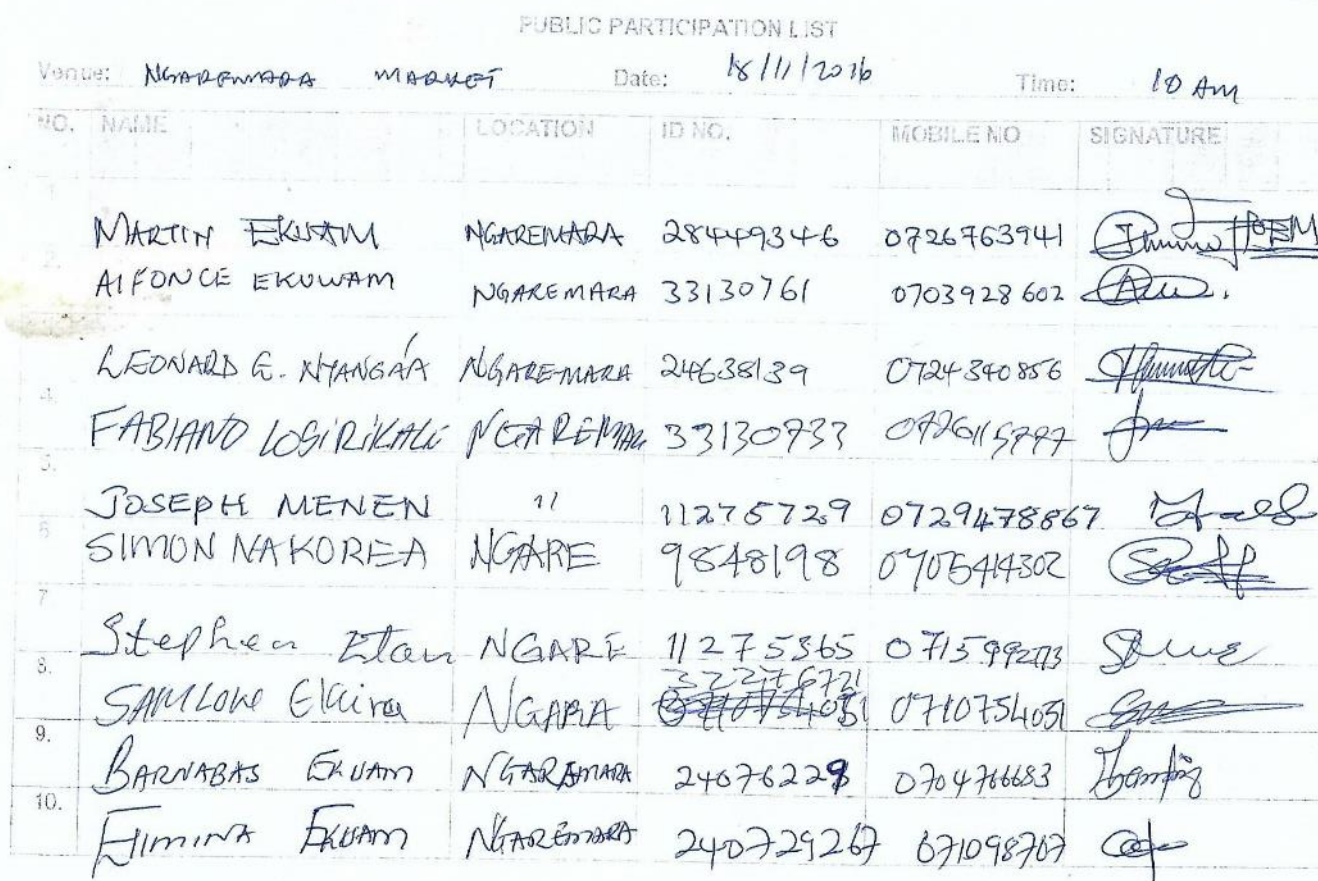 PUBLIC PARTICIPATION LIST
Venue: NGAREMARA MARKET Date: 18/11/2016 Time: 10 Am
NO. NAME LOCATION ID NO. MOBILE NO SIGNATURE
1.
MARTIN EKUAM NGAREMARA 28449346 0726763941
2.
AlFONCE EKUWAM NGAREMARA 33130761 0703928602
LEONARD E. NYANGÁA NGAREMARA 24638139 0724340856
4.
FABIANO LOSIRIKALI NGAREMAR 33130733 0726115797
5.
JOSEPH MENEN 11 11275729 0729478867
6
SIMON NAKOREA NGARE 9848198 0705414302
7
Stephen Etan NGARE 11275365 0715992773
8. 32276721
SAMLOKE Ekiru NGARA 0710754051
9.
BARNABAS EKUAM NGAREMARA 24076229 0704766683
10.
ELIMINA EKUAM NGAREMARA 240729267 071098707